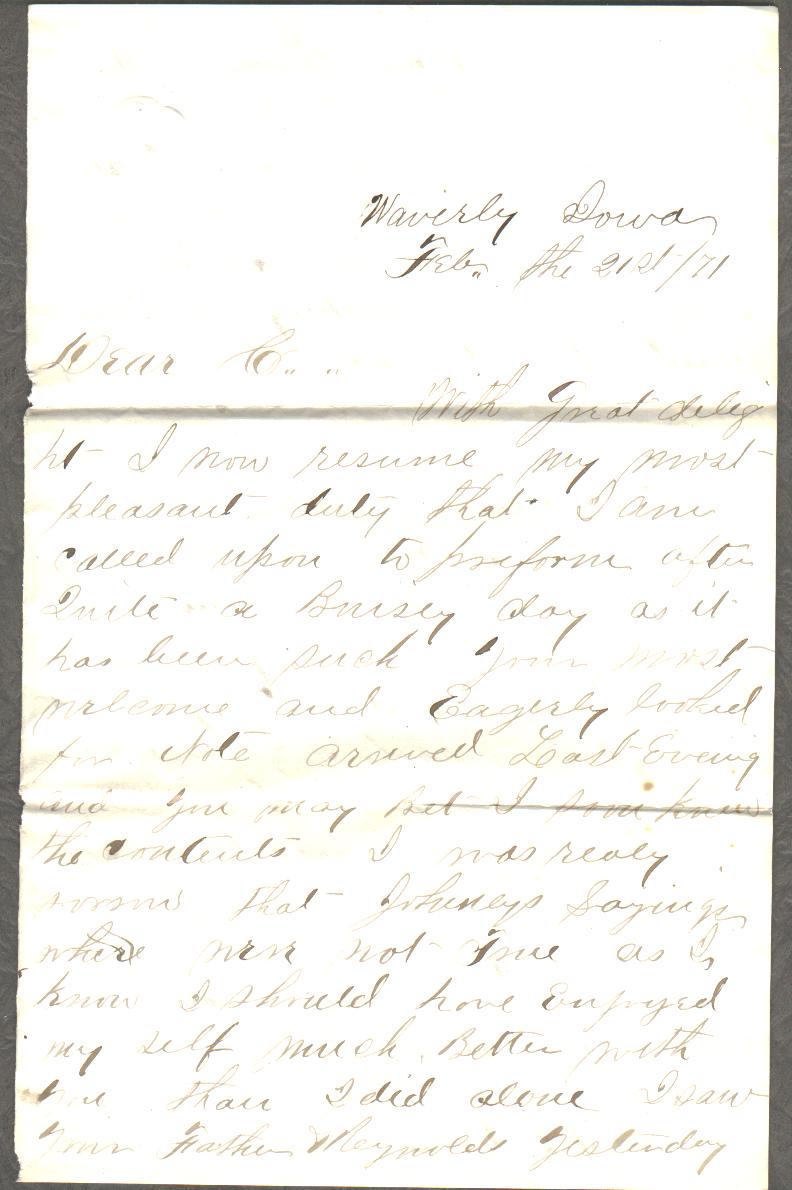 Waverly Iowa
Feb. the 21st/71
Dear C..
With Great delig
ht I now resume my most
pleasant duty that I am
called upon to preform after
Quite a Buisey day as it
has been such your most
welcome and Eagerly looked
for Note arived Last Evening
and you may Bet I soon knew
the contents I was realy
sorrow that Johneys Sayings
where were not True as I
know I should have Enjoyed
my self much Better with
you than I did alone I saw
your Father Reynolds yesterday